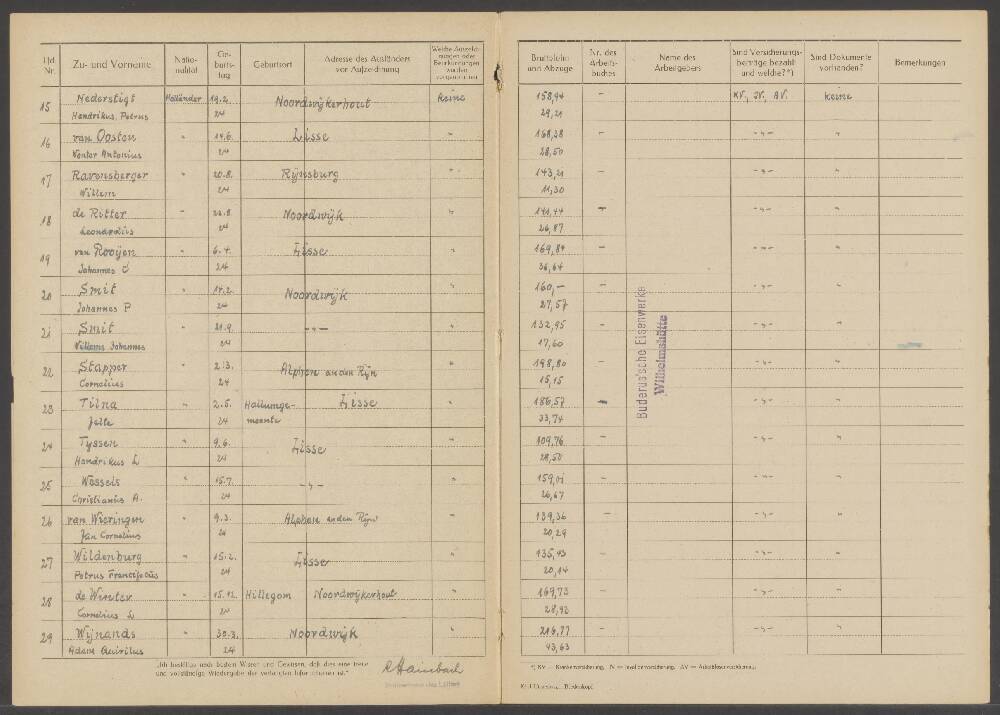 Lfd. Nr. Zu- und Vorname Natio- nalität Ge- burts- tag Geburtsort Adresse des Ausländers vor Aufzeichnung
15 Nederstigt Holländer 19.2. Noordwijkerhout keine
Hendrikus, Petrus 24
16 van Oosten " 14.6. Lisse "
Antonius 24
17 Ravensberger " 20.8. Rijnsburg "
Willem 24
18 de Ritter " 22.8. Noordwijk "
Leonardus 24
19 van Rooijen " 6.4. Lisse "
Johannes C 24
20 Smit " 17.2. Noordwijk "
Johannes P 24
21 Smit " 21.9. - " - "
Willems Johannes 24
22 Stapper " 2.3. Alphen an den Rijn "
Cornelius 24
23 " 2.5. Hallumge- Lisse "
Jelle 24 meente
24 Tyssen " 9.6. Lisse "
Hendrikus L 24
25 Wessels " 15.7. - " - "
Christianus A. 24
26 van Wieringen " 9.3. Alphen an den Rijn "
Jan Cornelius 24
27 Wildenburg " 15.2. Lisse "
Petrus Franciscus 24
28 de Winter " 15.12. Hillegom Noordwijkerhout "
Cornelius L 24
29 Wijnands " 30.3. Noordwijk "
Adam Quirilus 24
„Ich bestätige nach bestem Wissen und Gewissen, daß dies eine treue
und vollständige Wiedergabe der verlangten Informationen ist."
Bruttolohn und Abzüge Nr. des Arbeits- buches Name des Arbeitgebers Sind Versicherungs- beiträge bezahlt und welche?*) Sind Dokumente vorhanden? Bemerkungen
158,94 - KV., IV., AV. keine
29,21
168,38 - - " - "
28,50
143,21 - - " - "
11,30
141,44 - - " - "
26,87
169,84 - - " - "
36,64
160,- - - " - "
27,57
132,95 - - " - "
17,60
198,80 - - " - "
15,15
186,57 - - " - "
33,74
109,76 - - " - "
28,50
159,01 - - " - "
26,67
139,36 - - " - "
20,29
135,93 - - " - "
20,14
169,73 - - " - "
28,92
216,77 - - " - "
43,63
Buderus'sche Eisenwerke
Wilhelmshütte
*) KV = Krankenversicherung, IV = Invalidenversicherung, AV = Arbeitslosenversicherung